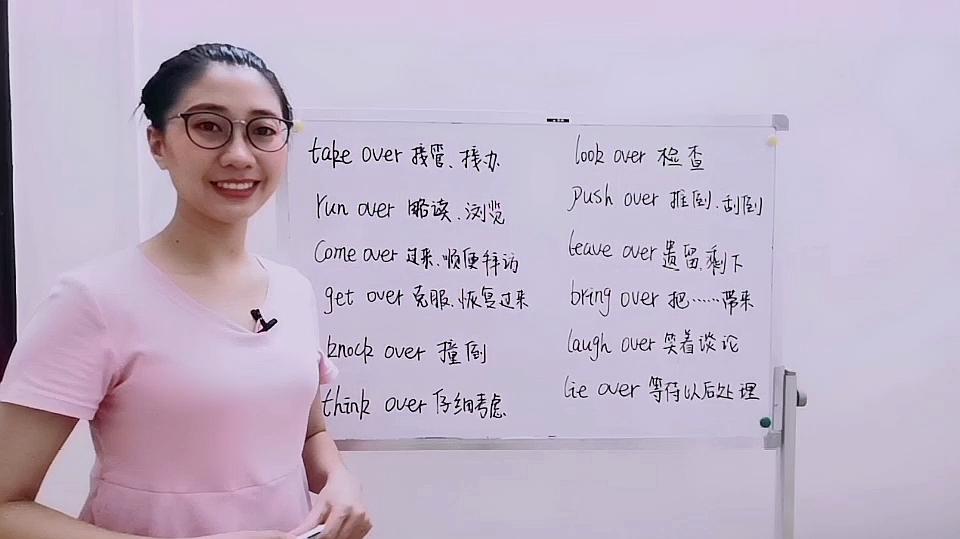 take over 接管、接办
run over 略读、浏览
come over 过来、顺便拜访
get over 克服、恢复过来
knock over 撞倒
think over 仔细考虑
look over 检查
push over 推倒、刮倒
leave over 遗留、剩下
bring over 把……带来
laugh over 笑着谈论
lie over 等待以后处理